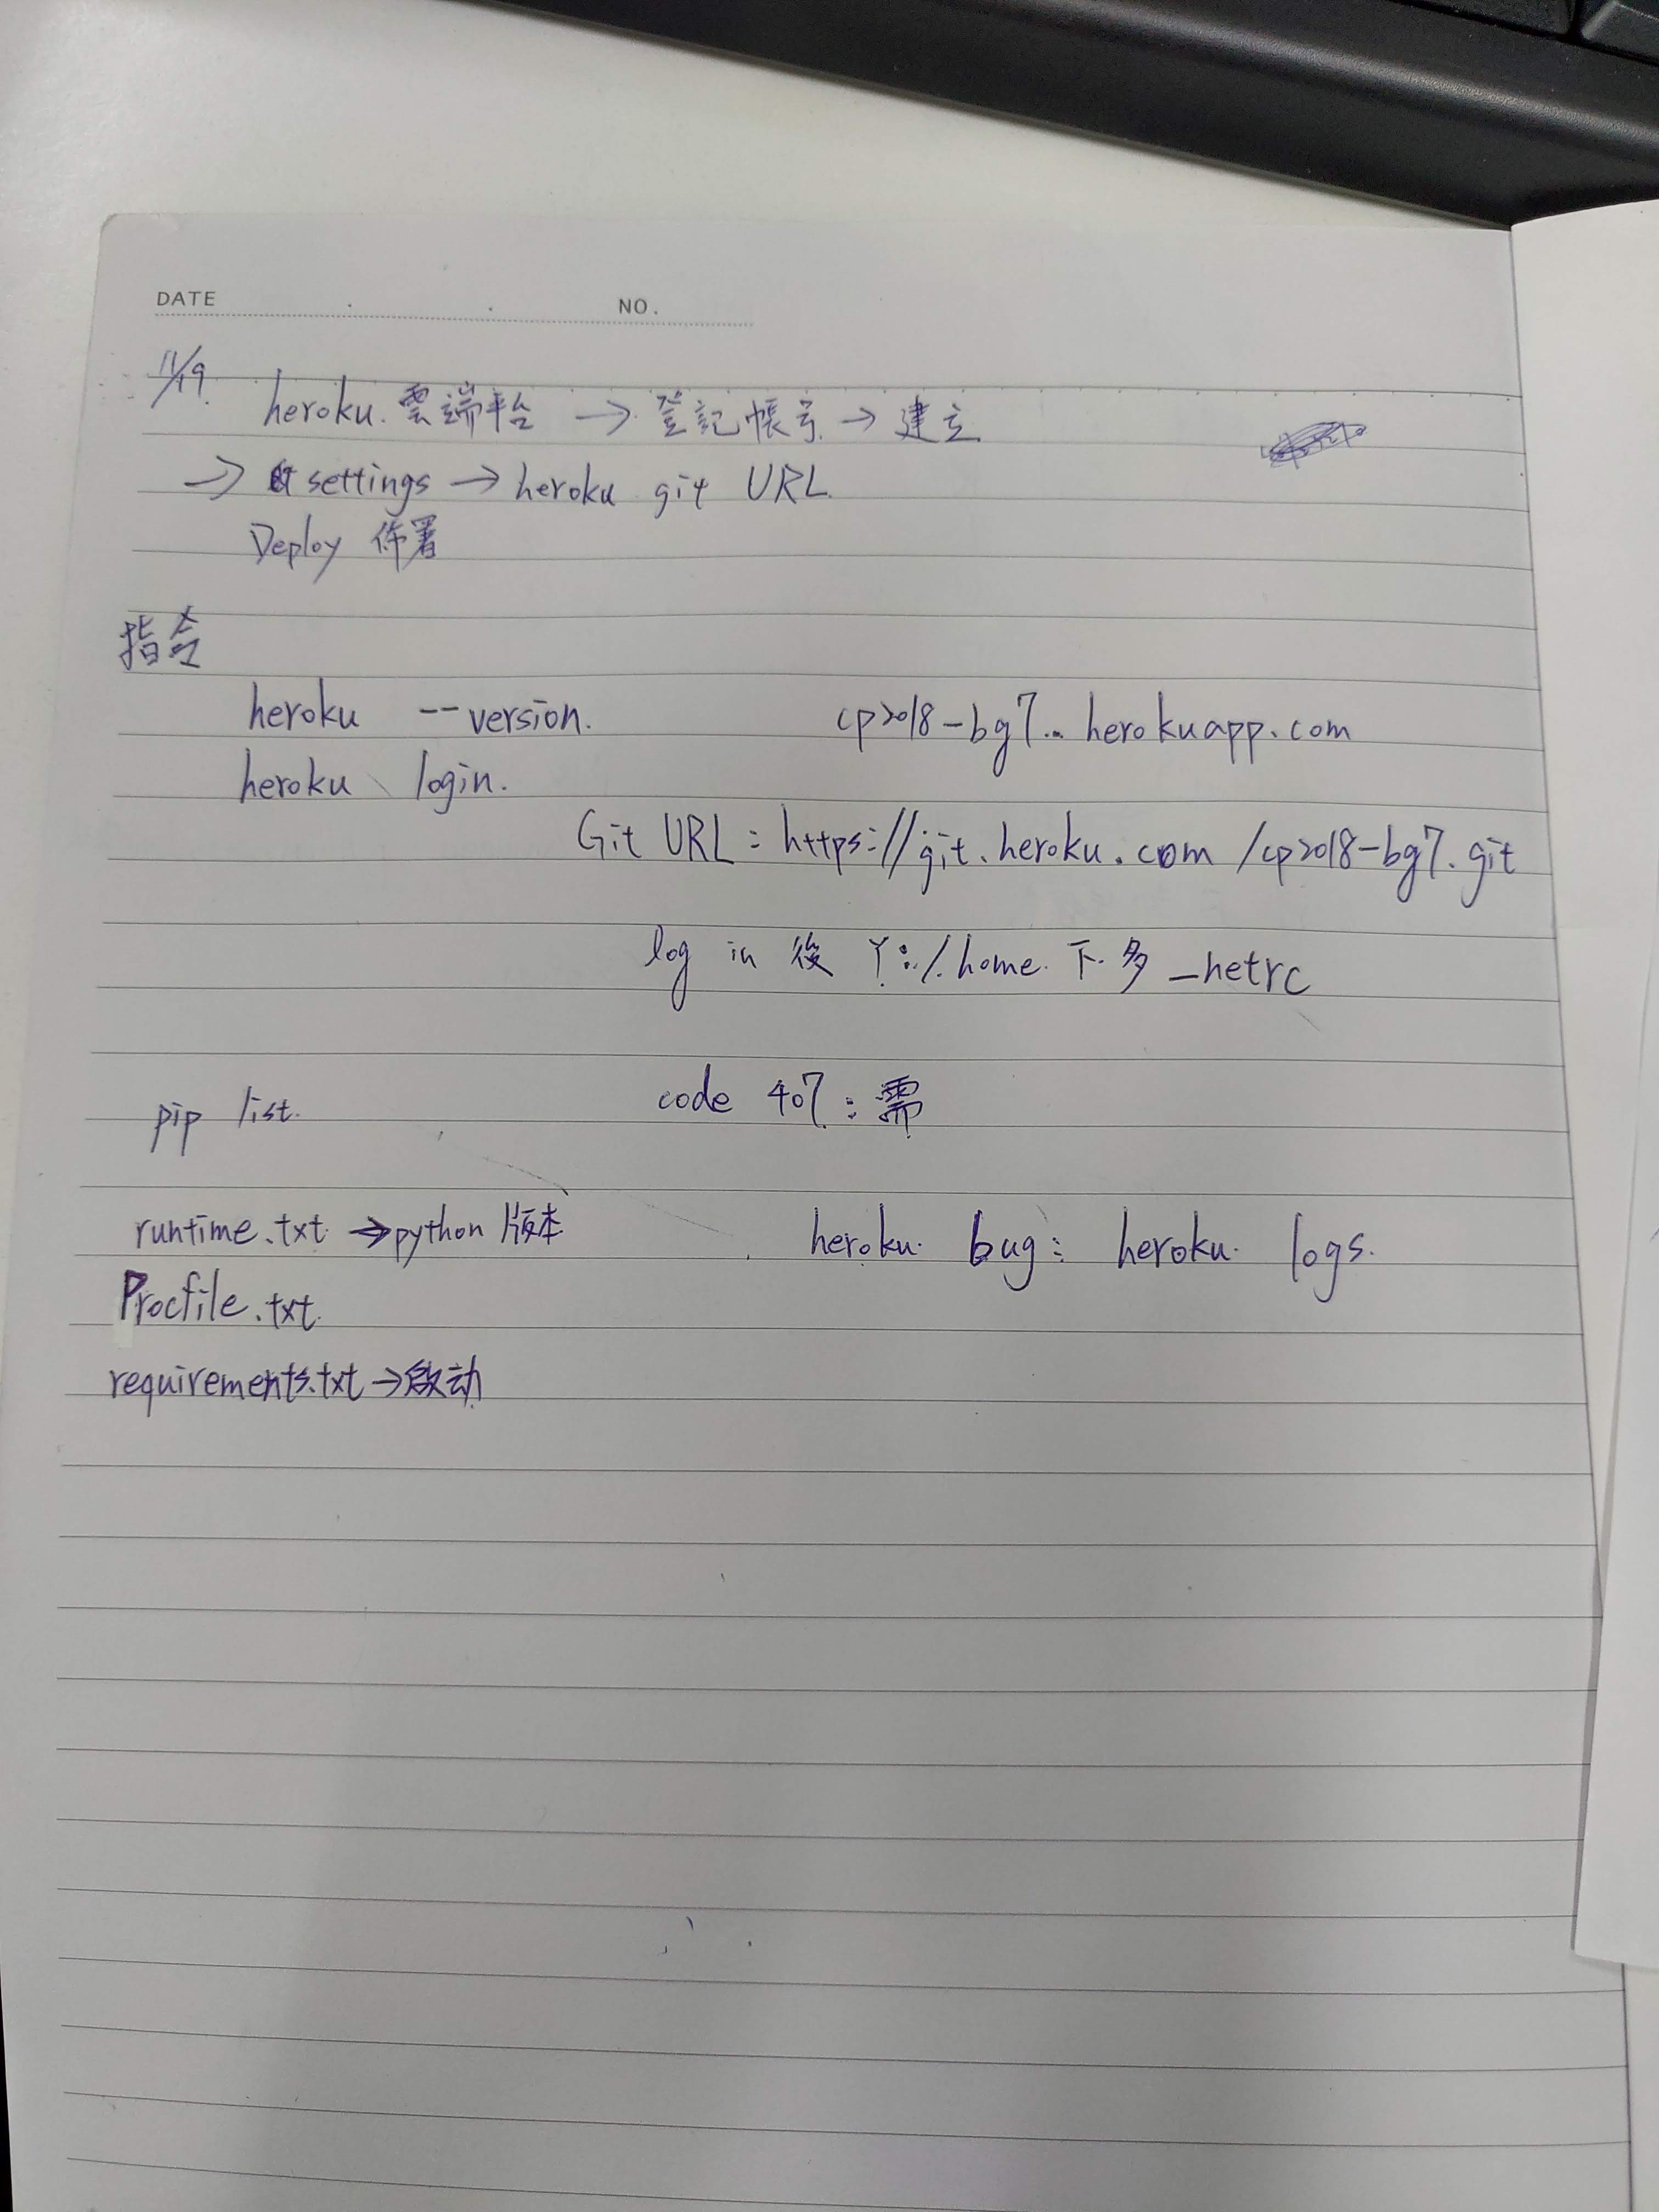 DATE . . NO.
11/19
heroku. 雲端平台 → 登記帳号 → 建立
→ settings → heroku git URL.
Deploy 佈署
指令
heroku --version.
cp2018-bg7.. herokuapp.com
heroku login.
Git URL : https://git.heroku.com/cp2018-bg7.git
log in 後 Y:/.home. 下多 _netrc
pip list.
code 407 : 需
runtime.txt → python 版本
heroku. bug : heroku. logs.
Procfile.txt.
requirements.txt → 啟动